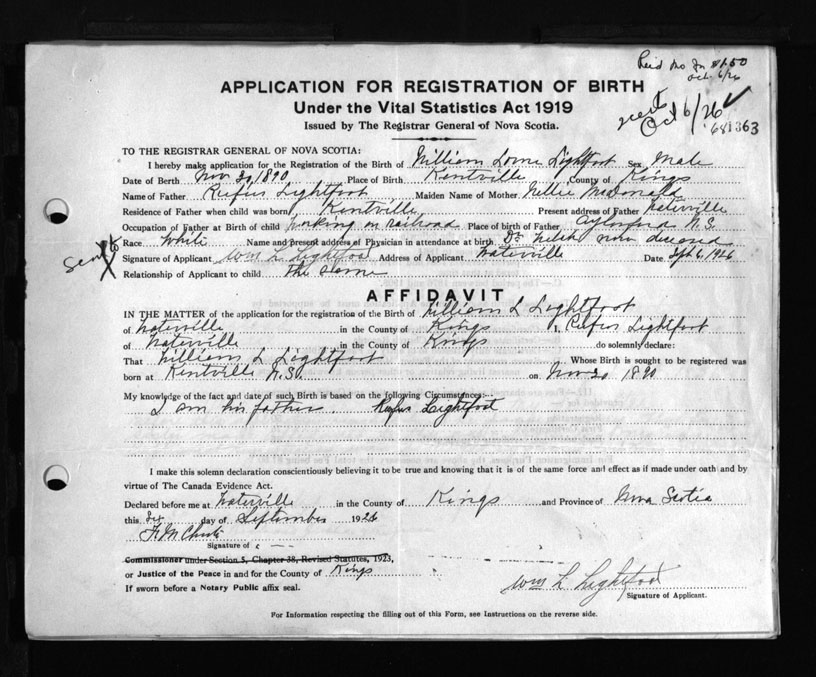 Recd Mo In $1.50
Oct 6/26
APPLICATION FOR REGISTRATION OF BIRTH
Under the Vital Statistics Act 1919
Oct 6/26
681363
Issued by The Registrar General of Nova Scotia.
TO THE REGISTRAR GENERAL OF NOVA SCOTIA:
I hereby make application for the Registration of the Birth of William Lorne Lightfoot Sex Male
Date of Birth Nov 20, 1890 Place of Birth Kentville County of Kings
Name of Father Rufus Lightfoot Maiden Name of Mother Nellie McDonald
Residence of Father when child was born Kentville Present address of Father Waterville
Occupation of Father at Birth of child working on railroad Place of birth of Father Aylesford N.S.
Race White Name and present address of Physician in attendance at birth Dr. now deceased
Signature of Applicant Wm L Lightfoot Address of Applicant Waterville Date Sept 6, 1926
Relationship of Applicant to child the same
AFFIDAVIT
IN THE MATTER of the application for the registration of the Birth of William L Lightfoot
of Waterville in the County of Kings I, Rufus Lightfoot
of Waterville in the County of Kings do solemnly declare:
That William L Lightfoot Whose Birth is sought to be registered was
born at Kentville N.S. on Nov 20 1890
My knowledge of the fact and date of such Birth is based on the following Circumstances:
I am his father. Rufus Lightfoot
I make this solemn declaration conscientiously believing it to be true and knowing that it is of the same force and effect as if made under oath and by
virtue of The Canada Evidence Act.
Declared before me at Waterville in the County of Kings and Province of Nova Scotia
this six day of September 1926
Signature of
Commissioner under Section 5, Chapter 38, Revised Statutes, 1923,
or Justice of the Peace in and for the County of Kings
If sworn before a Notary Public affix seal.
Wm L Lightfoot
Signature of Applicant.
For Information respecting the filling out of this Form, see Instructions on the reverse side.